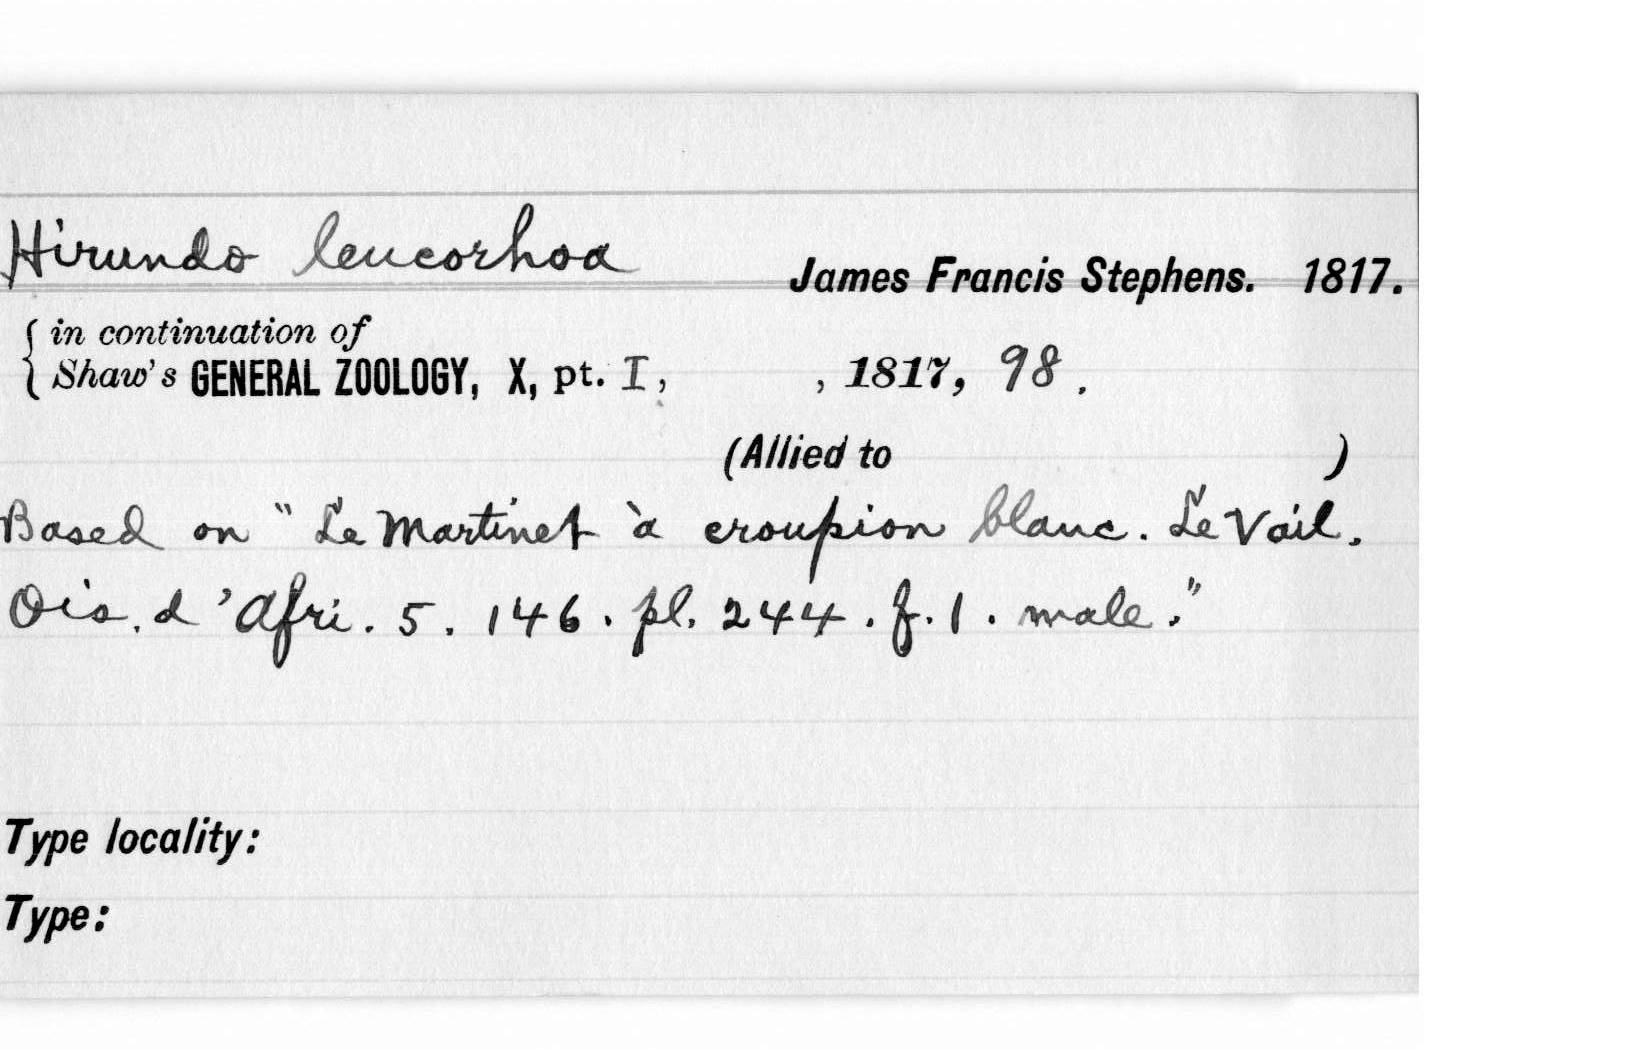 Hirundo leucorhoa
James Francis Stephens. 1817.
{ in continuation of
Shaw's GENERAL ZOOLOGY, X, pt. I, , 1817, 98.
(Allied to )
Based on "Le Martinet à croupion blanc. Le Vail.
Ois. d'Afri. 5. 146. pl. 244. f. 1. male."
Type locality:
Type: